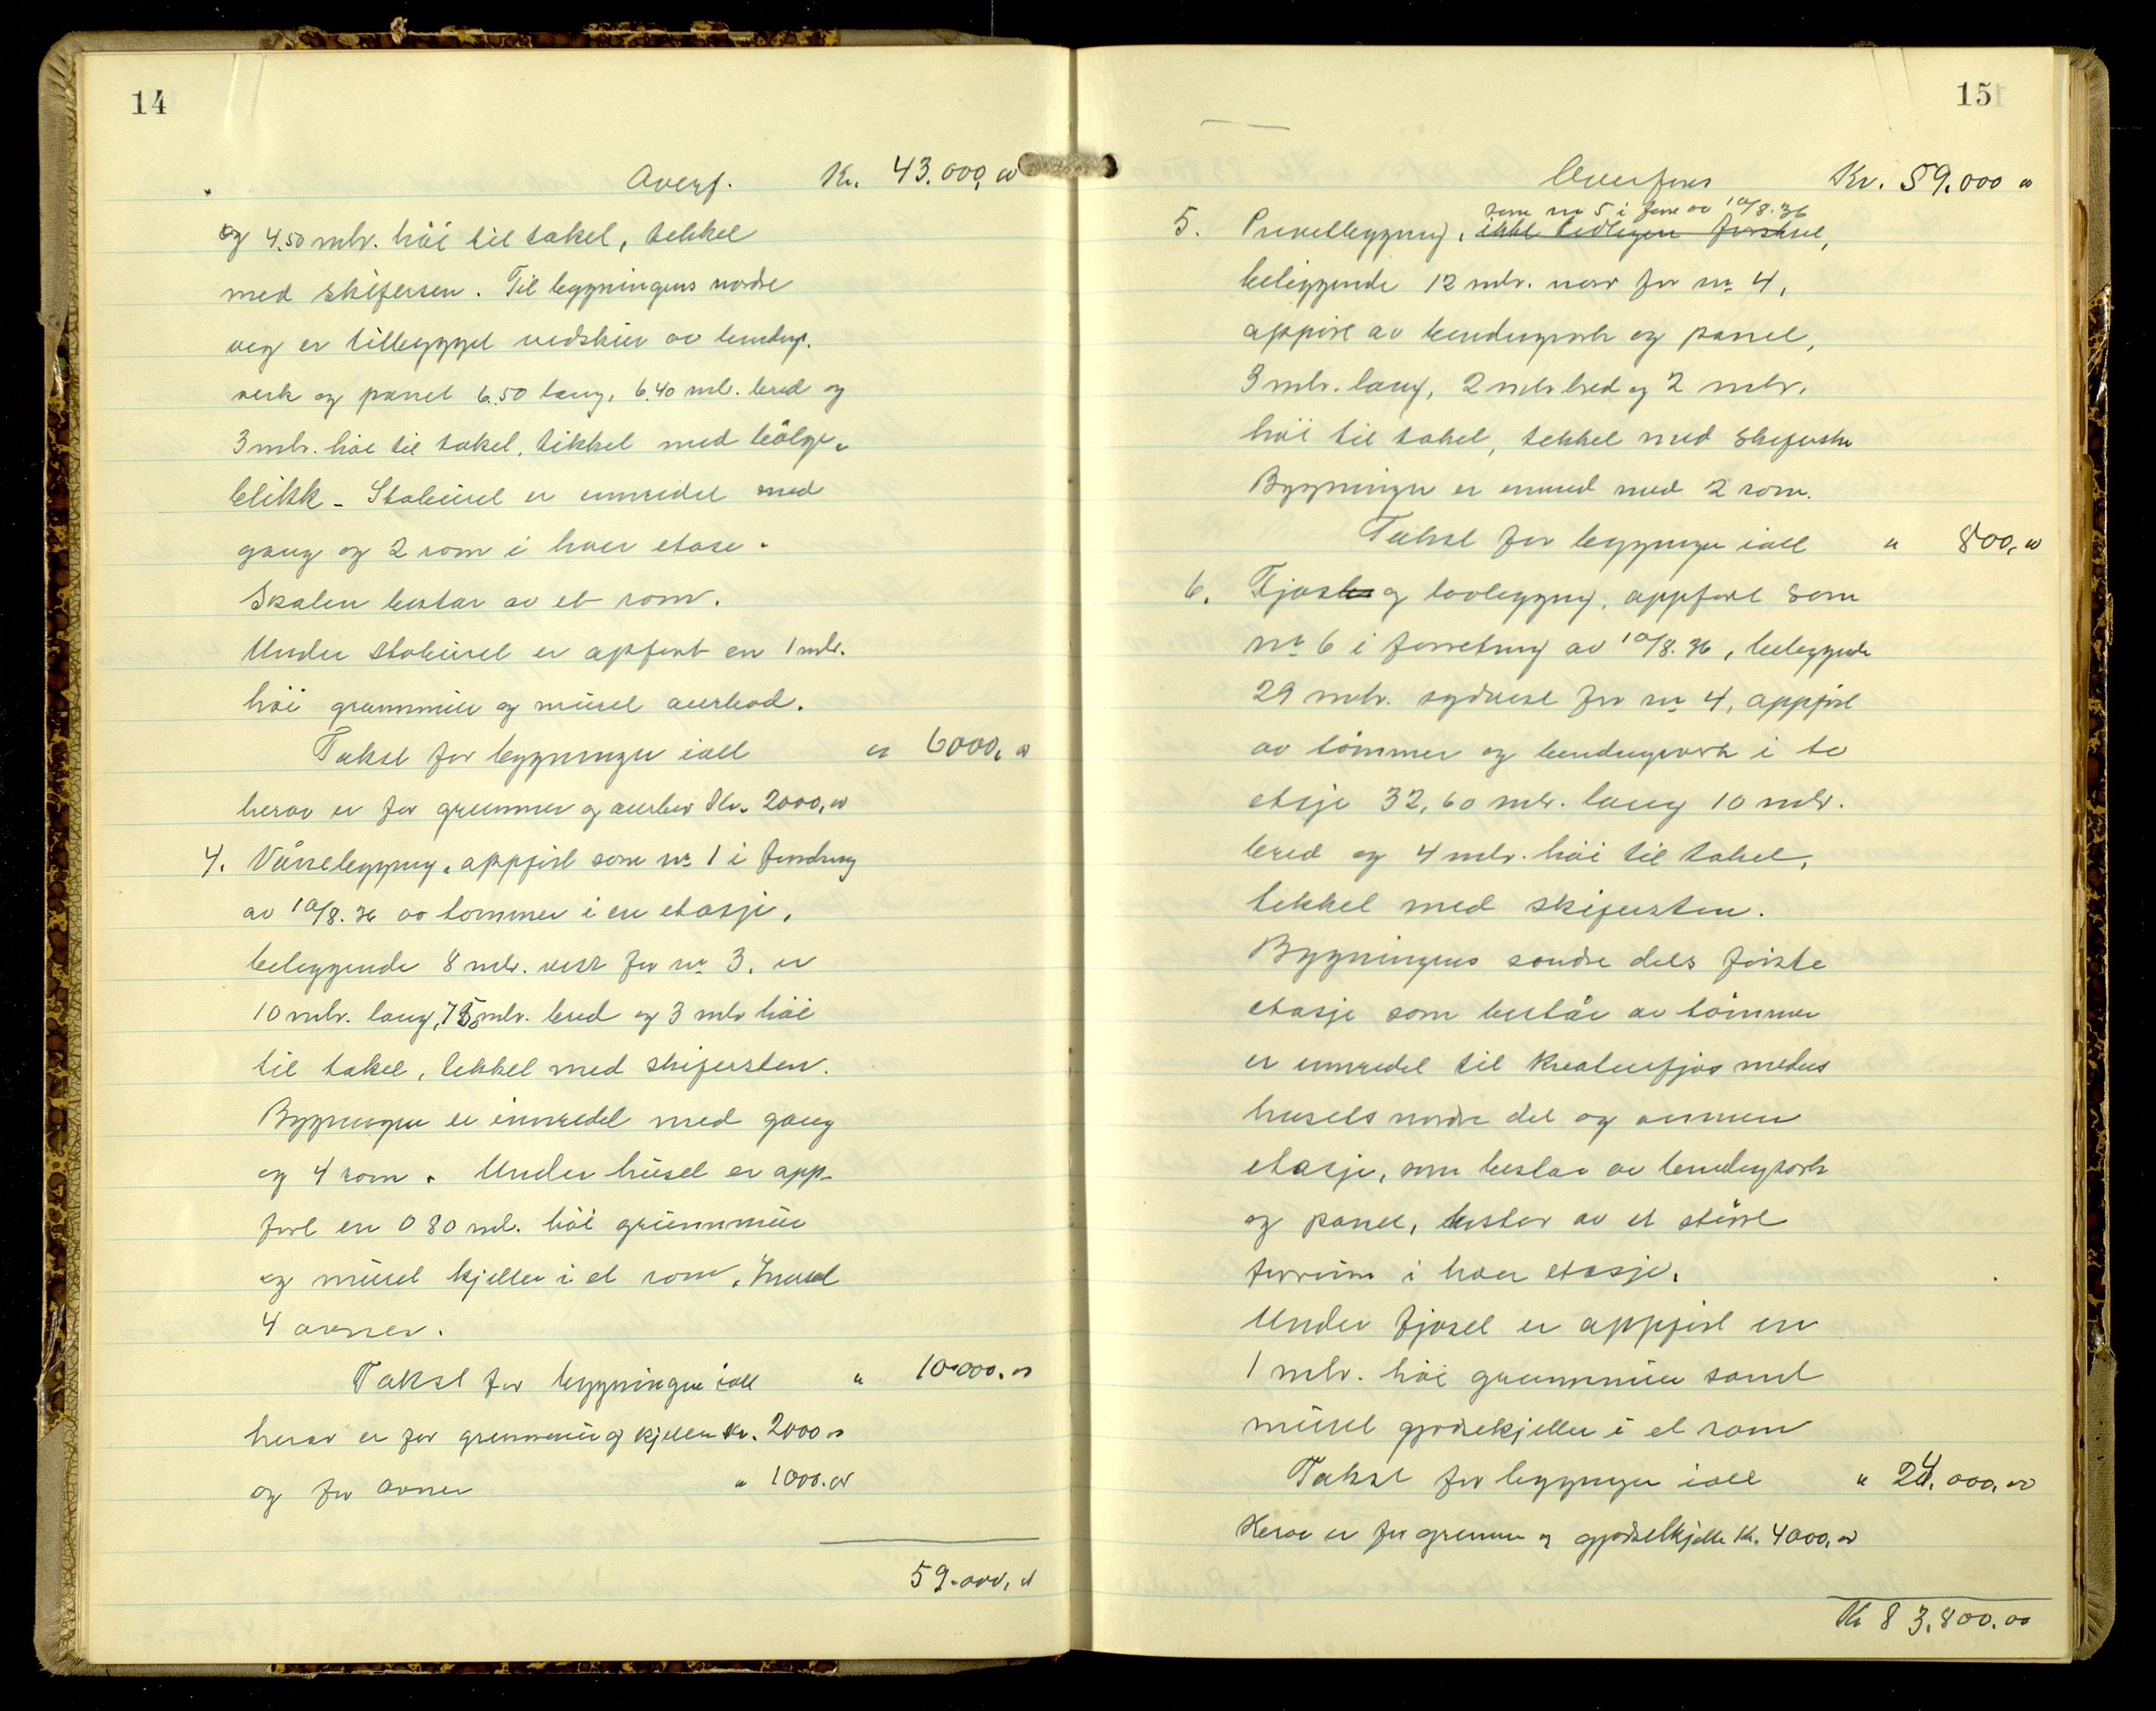 14
Overf. Kr. 43.000,00
og 4.50 mtr. höi til taket, tekket
med skifersten. Til bygningens nordre
veg er tilbygget vedskur av bindings-
verk og panel 6.50 lang, 6.40 mtr. bred og
3 mtr. höi til taket, tekket med bölge-
blikk - Stabburet er innredet med
gang og 2 rom i hver etasje.
Svalen bestar av et rom.
Under stabburet er opfört en 1 mtr.
höi grunnmur og muret
Takst for bygningen ialt " 6000,00
herav er for grunnmur og Kr. 2000,00
4. bygning, oppfört som nr 1 i forretning
av 10/8.36 av tömmer i en etasje,
beliggende 8 mtr. vest for nr 3, er
10 mtr. lang, 7.50 mtr. bred og 3 mtr höi
til taket, tekket med skifersten.
Bygningen er innredet med gang
og 4 rom. Under huset er opp-
fört en 0 80 mtr. höi grunnmur
og muret kjeller i et rom. Innsat
4 ovner.
Takst for bygningen ialt " 10.000,00
herav er for grunnmur og kjeller Kr. 2000 00
og for ovner " 1000.00
59.000,00
15
Overföres Kr. 59.000 00
som nr 5 i forr av 10/8.36
5. Privetbygning, ikke tidligere forsikret,
beliggende 12 mtr. nord for nr 4,
oppfört av bindingsverk og panel,
3 mtr. lang, 2 mtr bred og 2 mtr.
höi til taket, tekket med skifersten
Bygningen er innred med 2 rom.
Takst for bygningen ialt " 800,00
6. Fjös og lovebygning, oppfört som
nr 6 i forretning av 10/8.36, beliggende
29 mtr. sydvest for nr 4, oppfört
av tömmer og bindingsverk i to
etasje 32,60 mtr. lang 10 mtr.
bred og 4 mtr. höi til taket,
tekket med skifersten.
Bygningens söndre dels förste
etasje som består av tömmer
er innredet til kreaturfjös medens
husets nordre del og annen
etasje, som bestar av bindingsverk
og panel, bestar av et större
forrum i hver etasje.
Under fjöset er oppfört en
1 mtr. höi grunnmur samt
muret gjödselkjeller i et rom
Takst for bygningen ialt " 24.000,00
Herav er for grunnmur og gjödselkjeller Kr. 4000,00
Kr 83.800.00